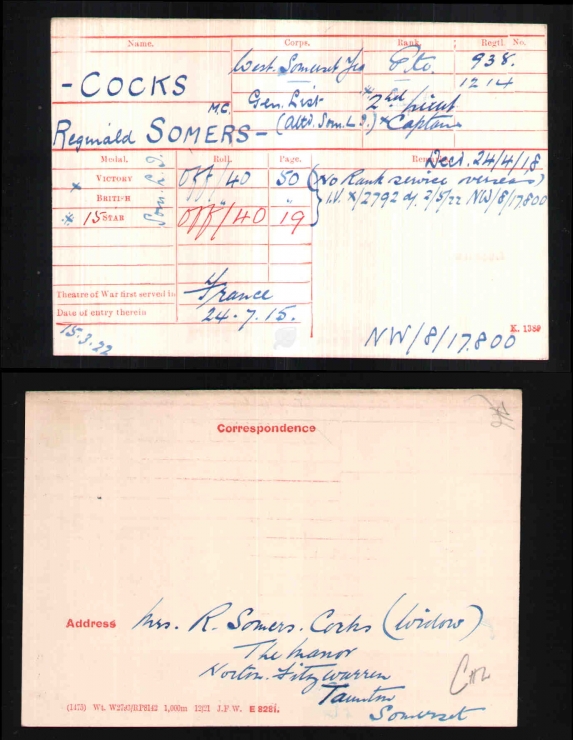 Name. Corps. Rank. Regtl. No.
West. Somerset Yeo Pte 938.
1214
- COCKS
M.C. Gen. List * 2nd Lieut
(attd. Som. L.I.) * Captain
Reginald SOMERS-
Medal. Roll. Page. Remarks
Decd. 24/4/18
* VICTORY Off/40 50 (No Rank service overseas)
BRITISH " " I.V. */2792 d/ 2/5/22 NW/8/17800
* 15 STAR Off/40 19
Som. L.I.
Theatre of War first served in France
Date of entry therein 24.7.15.
15.3.22
NW/8/17800
K. 1389
Correspondence
Address Mrs. R. Somers. Cocks (Widow)
The Manor
Norton. Fitzwarren
Taunton
Somerset
(1473) Wt. 1,000m 12/21 J.F.W. E 8281.